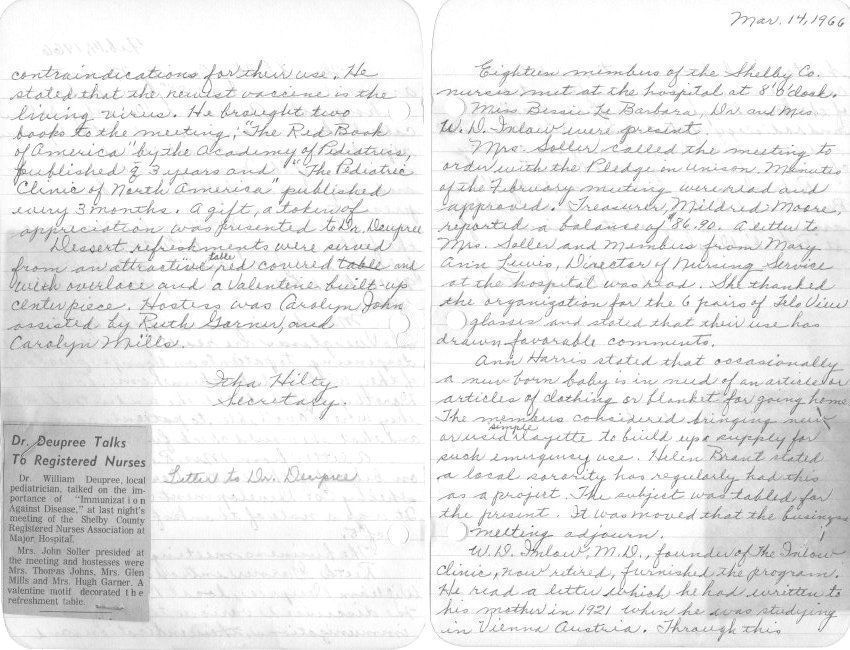 contraindications for their use. He
stated that the newest vaccine is the
living virus. He brought two
books to the meeting; "The Red Book
of America" by the Academy of Pediatrics,
published q 3 years and "The Pediatric
Clinic of North America" published
every 3 months. A gift, a token of
appreciation was presented to Dr. Deupree
Dessert refreshments were served
table
from an attractive red covered table and
with overlace and a Valentine built-up
centerpiece. Hostess was Carolyn John
assisted by Ruth Garner, and
Carolyn Mills.
Itha Hilty
Secretary.
Dr. Deupree Talks
To Registered Nurses
Dr. William Deupree, local
pediatrician, talked on the im-
portance of "Immunization
Against Disease," at last night's
meeting of the Shelby County
Registered Nurses Association at
Major Hospital.
Mrs. John Soller presided at
the meeting and hostesses were
Mrs. Thomas Johns, Mrs. Glen
Mills and Mrs. Hugh Garner. A
valentine motif decorated the
refreshment table.
Letter to Dr. Deupree
Mar. 14, 1966
Eighteen members of the Shelby Co.
nurses met at the hospital at 8 o'clock.
Miss Bessie Le Barbara, Dr and Mrs.
W. D. Inlow were present.
Mrs. Soller called the meeting to
order with the Pledge in unison. Minutes
of the February meeting were read and
approved. Treasurer, Mildred Moore,
reported a balance of $86.90. A letter to
Mrs. Soller and Members from Mary
Ann Lewis, Director of Nursing Service
at the hospital was read. She thanked
the organization for the 6 pairs of Tela View
glasses and stated that their use has
drawn favorable comments.
Ann Harris stated that occasionally
a new born baby is in need of an article or
articles of clothing or blanket for going home.
The members considered bringing new
simple
or used layette to build up a supply for
such emergency use. Helen Brant stated
a local sorority has regularly had this
as a project. The subject was tabled for
the present. It was moved that the business
meeting adjourn.
W. D. Inlow, M.D., founder of the Inlow
Clinic, now retired, furnished the program.
He read a letter which he had written to
his mother in 1921 when he was studying
in Vienna Austria. Through this